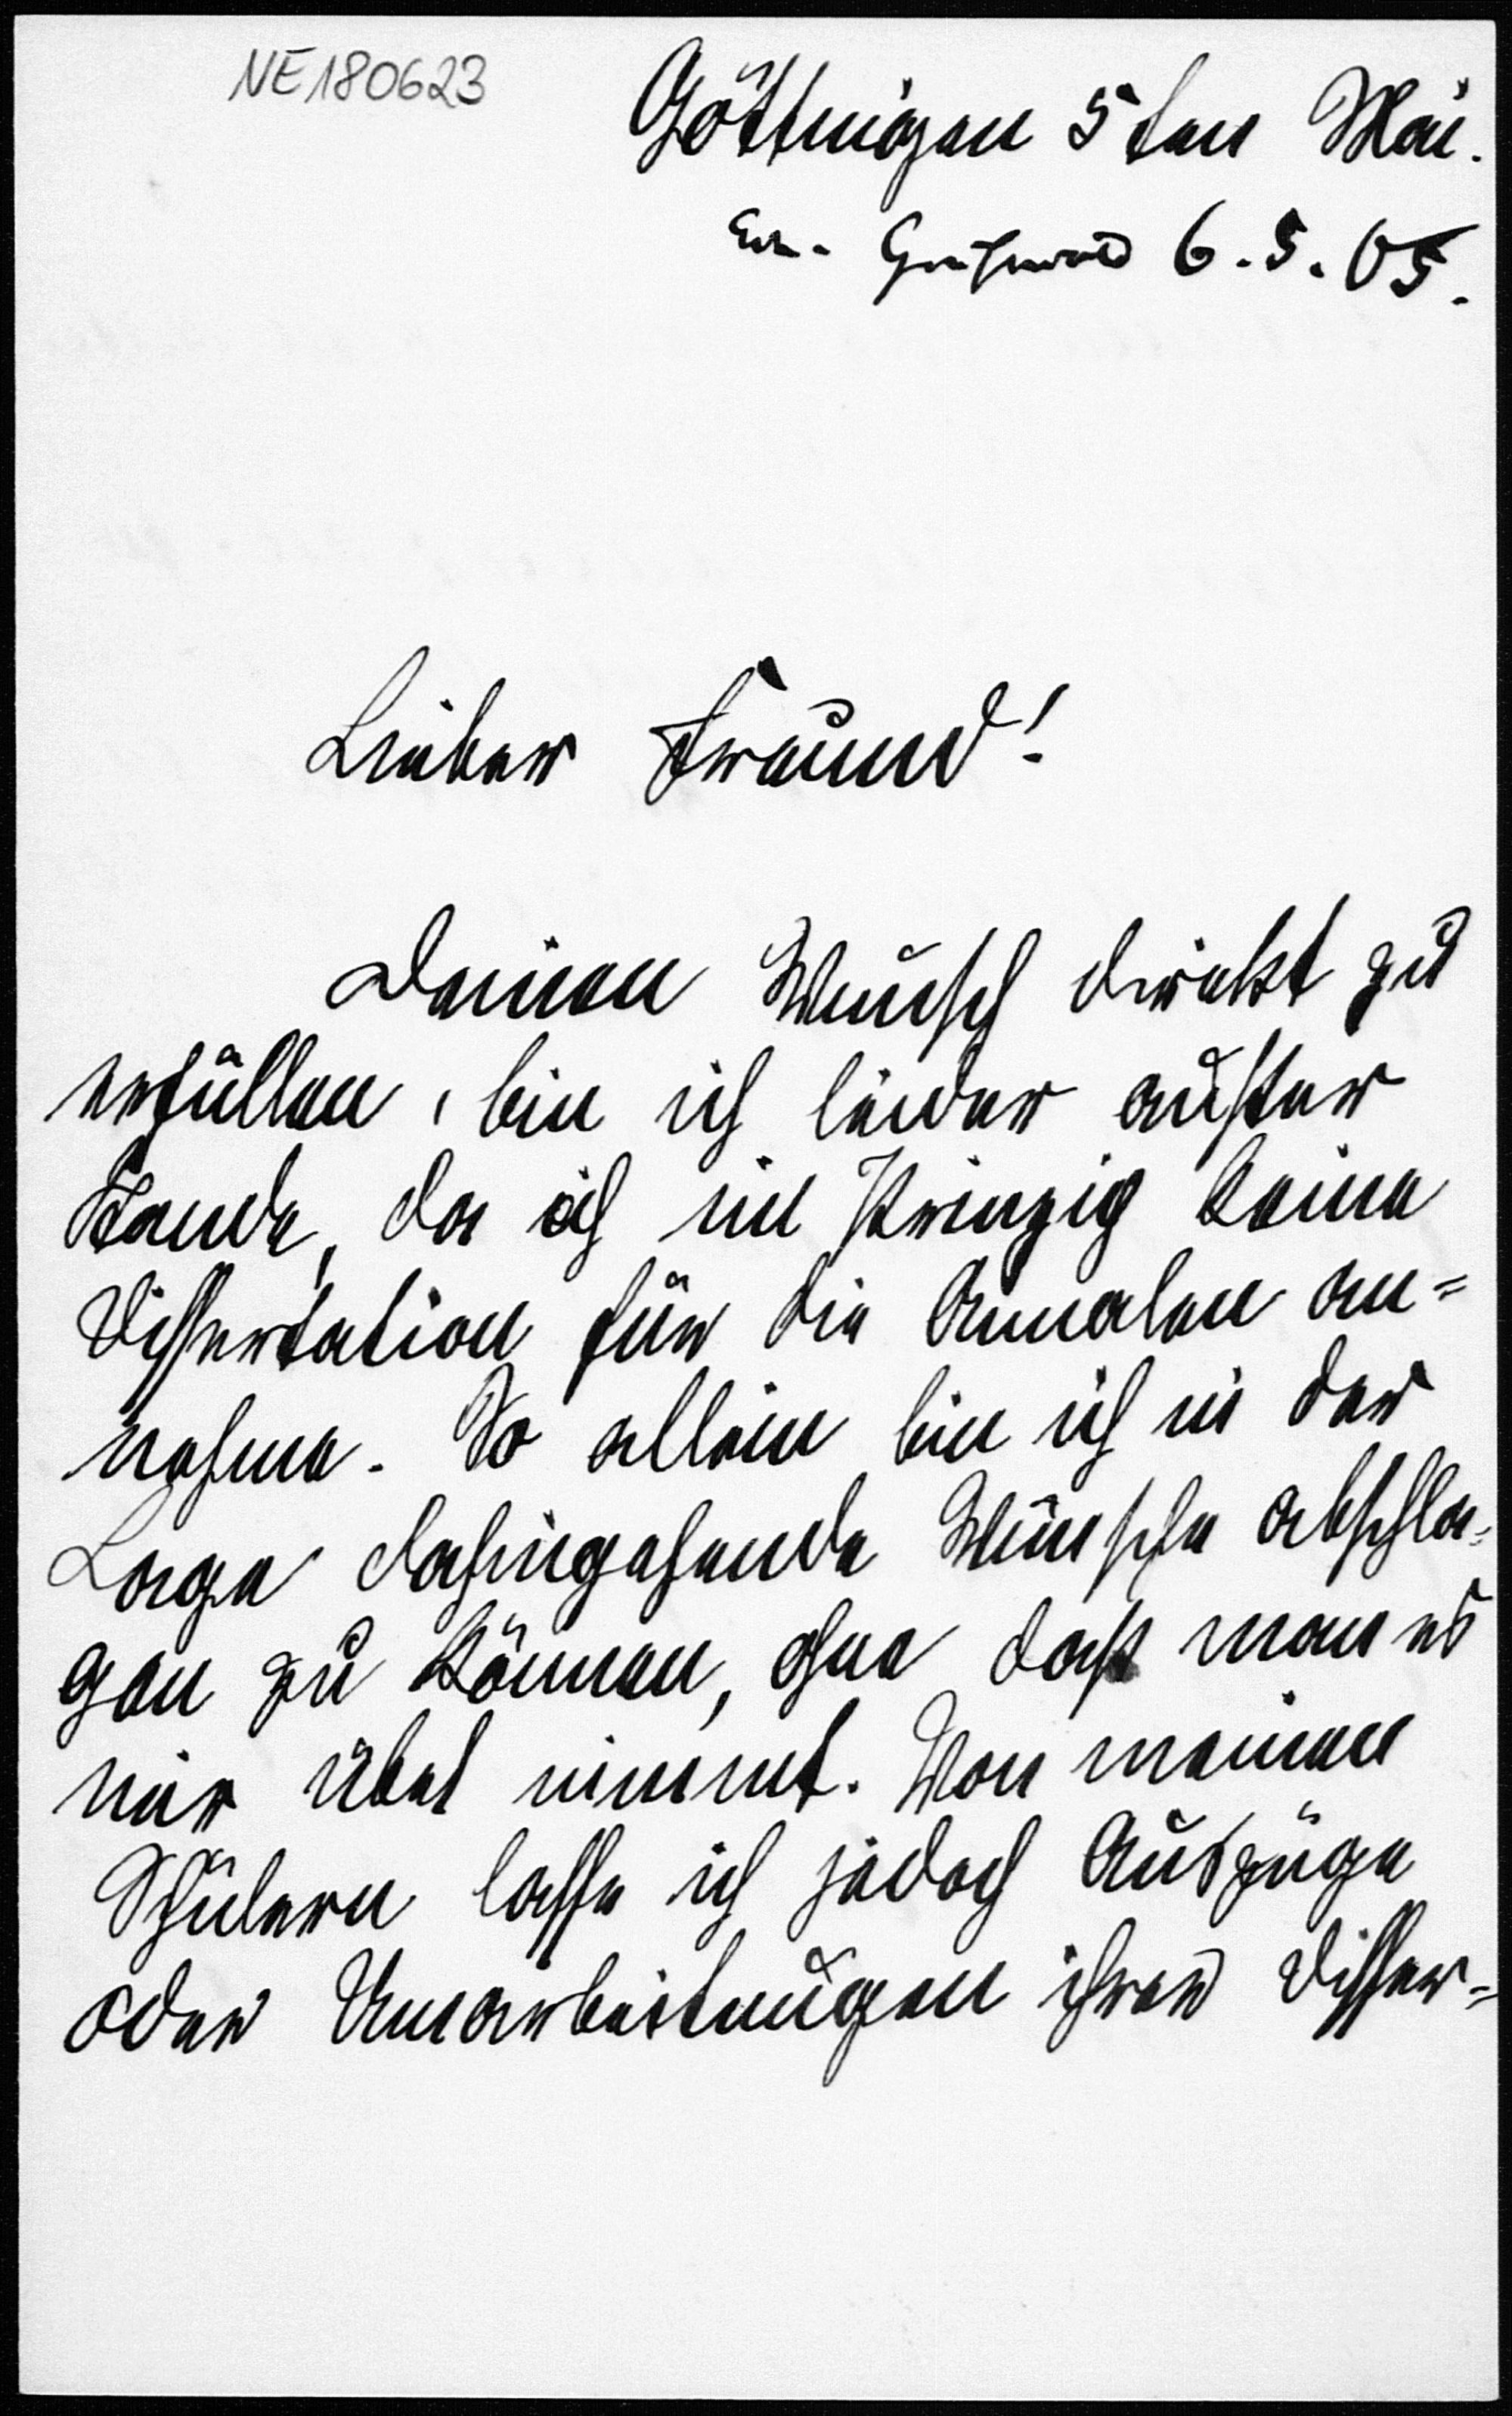 NE180623
Göttingen 5ten Mai.
Erh. Greifswald 6.5.05.
Lieber Freund!
Deinen Wunsch direkt zu
erfüllen, bin ich leider außer
Stande, da ich im Prinzip keine
Dissertation für die Annalen an=
nehme. So allein bin ich in der
Lage dahingehende Wünsche abschla=
gen zu können, ohne daß man es
mir übel nimmt. Von meinen
Schülern lasse ich jedoch Auszüge
oder Umarbeitungen ihrer Disser=